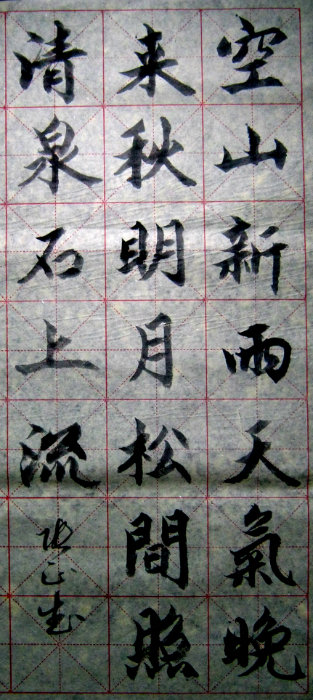 空山新雨天氣晚
来秋明月松間照
清泉石上流